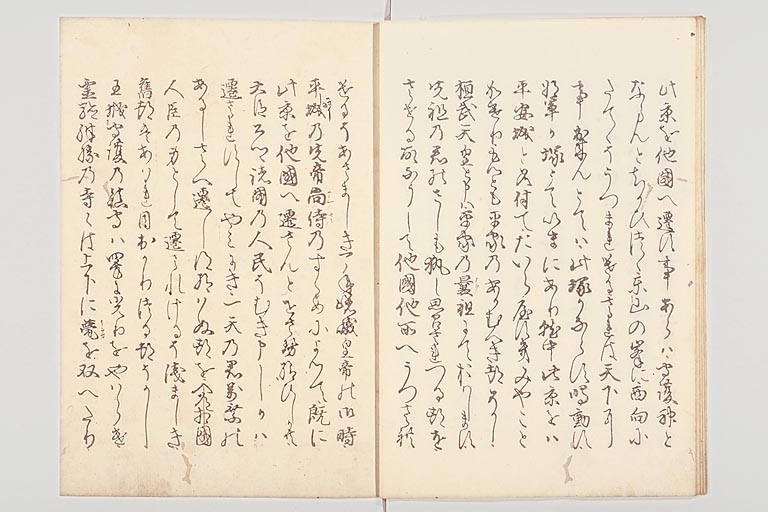 此京を他國へ遷す事あらは守護神と
なるへしとちかひつゝ東山の峯に西向に
たてゝうつまれけるされは天下に
事出來んとては此塚かならす鳴動す
将軍か塚とていまにあり就中此京をは
平安城と名付てたいらかにみやこと
平家のあかむへき都なり
桓武天皇と申は平家の曩祖にておはします
先祖の君のさしも執し思食れつる都を
させる故なうして他國他所へうつされ
けるそあさましき一とせ嵯峨皇帝の御時
平城の先帝尚侍のすゝめによつて既に
此京を他國へ遷さんとせさせ給ひしかとも
大臣公卿諸國の人民そむき申しかは
遷されすしてやみにき一天の君万乗の
あるしさへ遷し得給はぬ都を入道相國
人臣の身として遷されけるそ浅ましき
舊都はあはれ目出かりつる都そかし
王城守護の鎮守は四方に光をやはらけ
霊験殊勝の寺々は上下に甍を双へたり